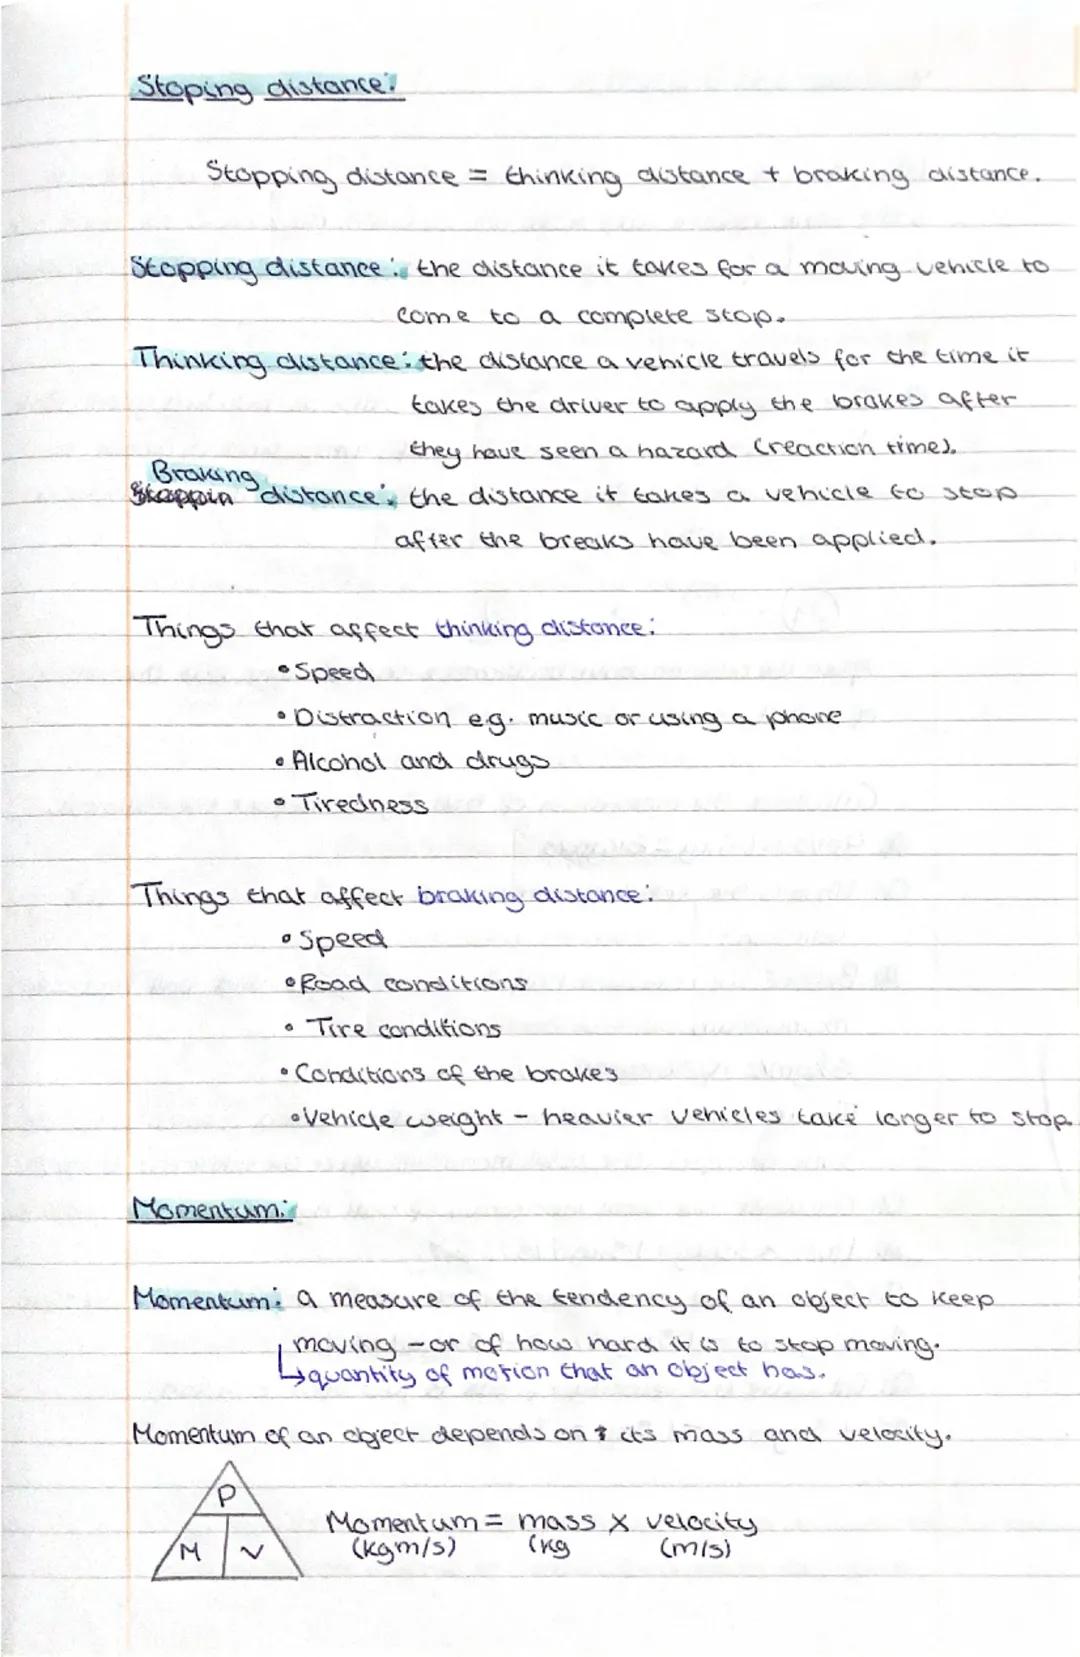 Stoping distance:
Stopping distance = thinking distance + braking distance.
Stopping distance: the distance it takes for a moving vehicle to
come to a complete stop.
Thinking distance: the distance a vehicle travels for the time it
takes the driver to apply the brakes after
they have seen a hazard (reaction time).
Braking
Stoppin distance: the distance it takes a vehicle to stop
after the breaks have been applied.
Things that affect thinking distance:
• Speed
• Distraction e.g. music or using a phone
• Alcohol and drugs
• Tiredness
Things that affect braking distance:
• Speed
• Road conditions
• Tire conditions
• Conditions of the brakes
• Vehicle weight - heavier vehicles take longer to stop.
Momentum:
Momentum: a measure of the tendency of an object to keep
moving - or of how hard it is to stop moving.
↳ quantity of motion that an object has.
Momentum of an object depends on its mass and velocity.
P
M V
Momentum = mass x velocity
(kgm/s) (kg (m/s)